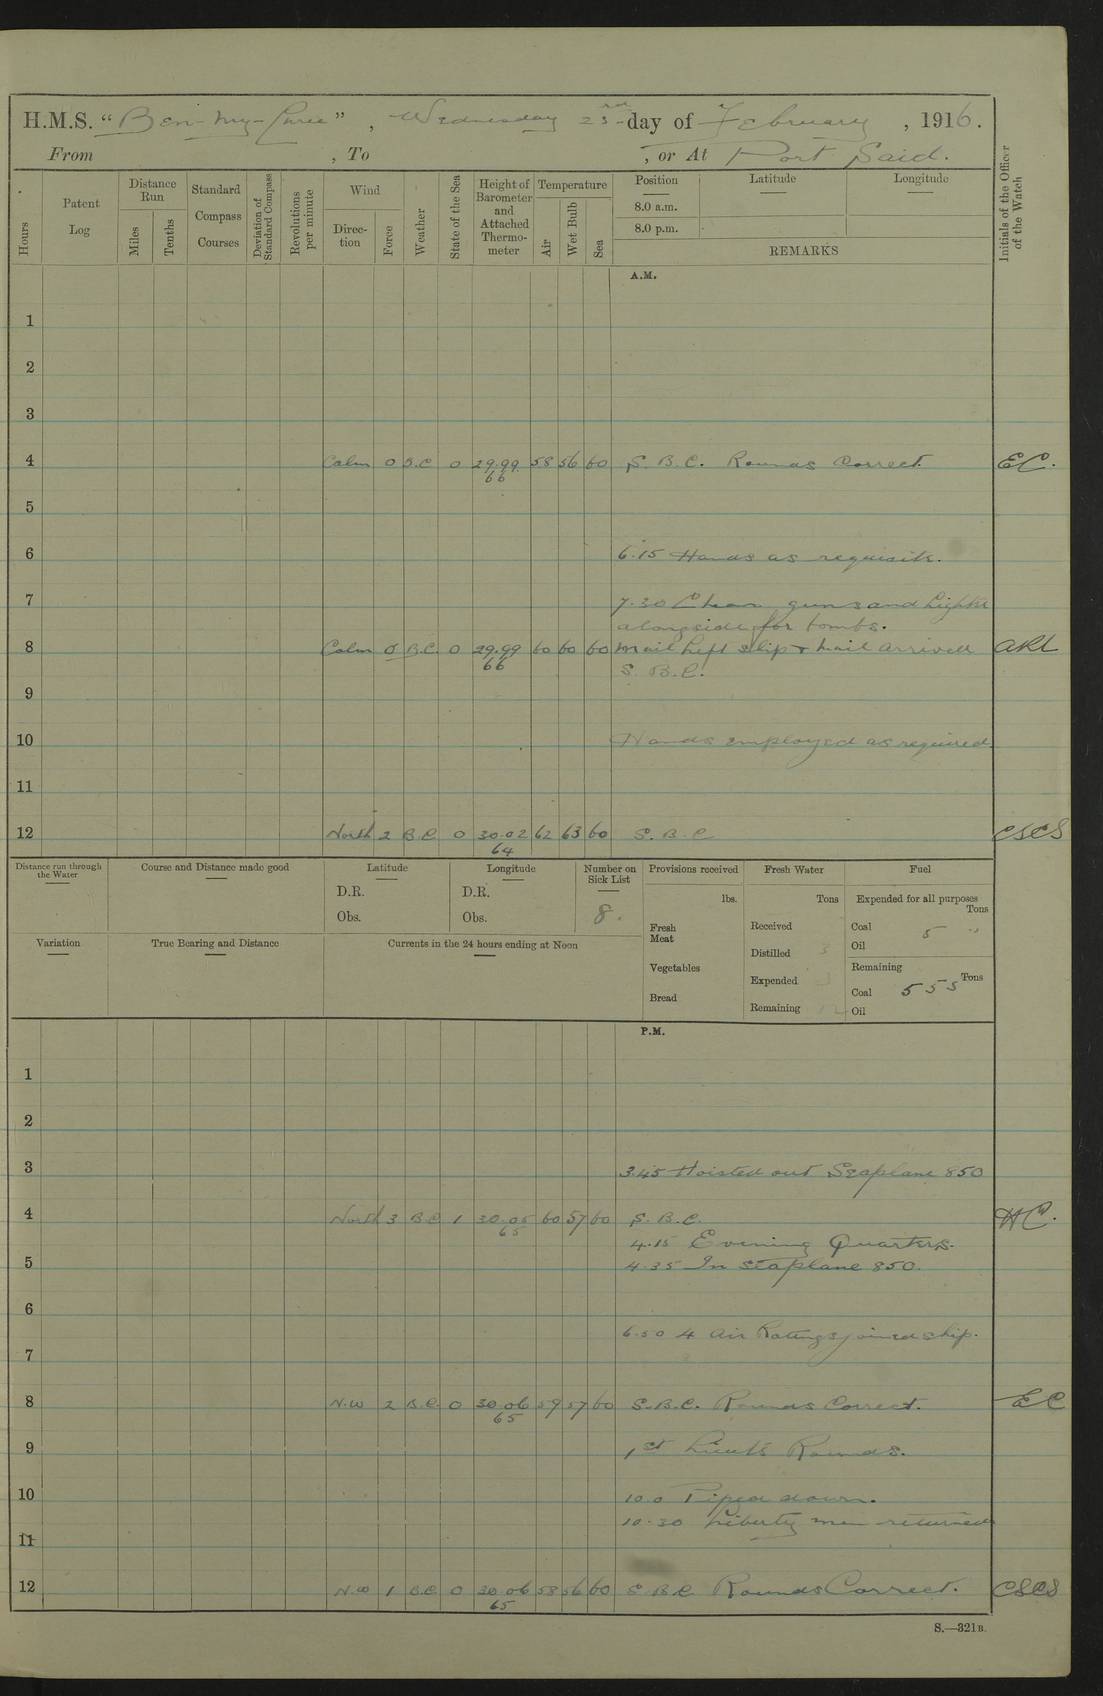 H.M.S. "Ben-my-Chree", Wednesday 23rd day of February, 1916.
From , To , or At Port Said.
Hours
Patent Log
Distance Run
Miles
Tenths
Standard Compass Courses
Deviation of Standard Compass
Revolutions per minute
Wind
Direction
Force
Weather
State of the Sea
Height of Barometer and Attached Thermometer
Temperature
Air
Wet Bulb
Sea
Position
Latitude
Longitude
8.0 a.m.
8.0 p.m.
REMARKS
Initials of the Officer of the Watch
A.M.
1
2
3
4 Calm 0 B.C 0 29.99 58 56 60 S. B. C. Rounds Correct. EC.
66
5
6 6.15 Hands as requisite.
7 7.30 Clean guns and Lighter
alongside for bombs.
8 Calm 0 B.C. 0 29.99 60 60 60 Mail left ship + mail arrived
66 S. B. C.
9
10 Hands employed as required
11
12 North 2 B.C 0 30.02 62 63 60 S. B. C CSCS
64
Distance run through the Water
Course and Distance made good
Latitude
D.R.
Obs.
Longitude
D.R.
Obs.
Number on Sick List
8.
Provisions received
lbs.
Fresh Meat
Vegetables
Bread
Fresh Water
Tons
Received
Distilled 3
Expended 3
Remaining
Fuel
Expended for all purposes
Tons
Coal 5
Oil
Remaining
Tons
Coal 555
Oil
Variation
True Bearing and Distance
Currents in the 24 hours ending at Noon
P.M.
1
2
3 3.45 Hoisted out Seaplane 850
4 North 3 B.C 1 30.05 60 57 60 S. B. C. HC.
65
4.15 Evening Quarters.
5 4.35 In seaplane 850.
6
6.50 4 Air Ratings joined ship.
7
8 N.W 2 B.C. 0 30.06 59 57 60 S.B.C. Rounds Correct. EC
65
9 1st Lieut's Rounds.
10 10.0 Piped down.
10.30 Liberty men returned
11
12 N.W 1 B.C 0 30.06 58 56 60 S. B. C Rounds Correct. CSCS
65
S.—321B.